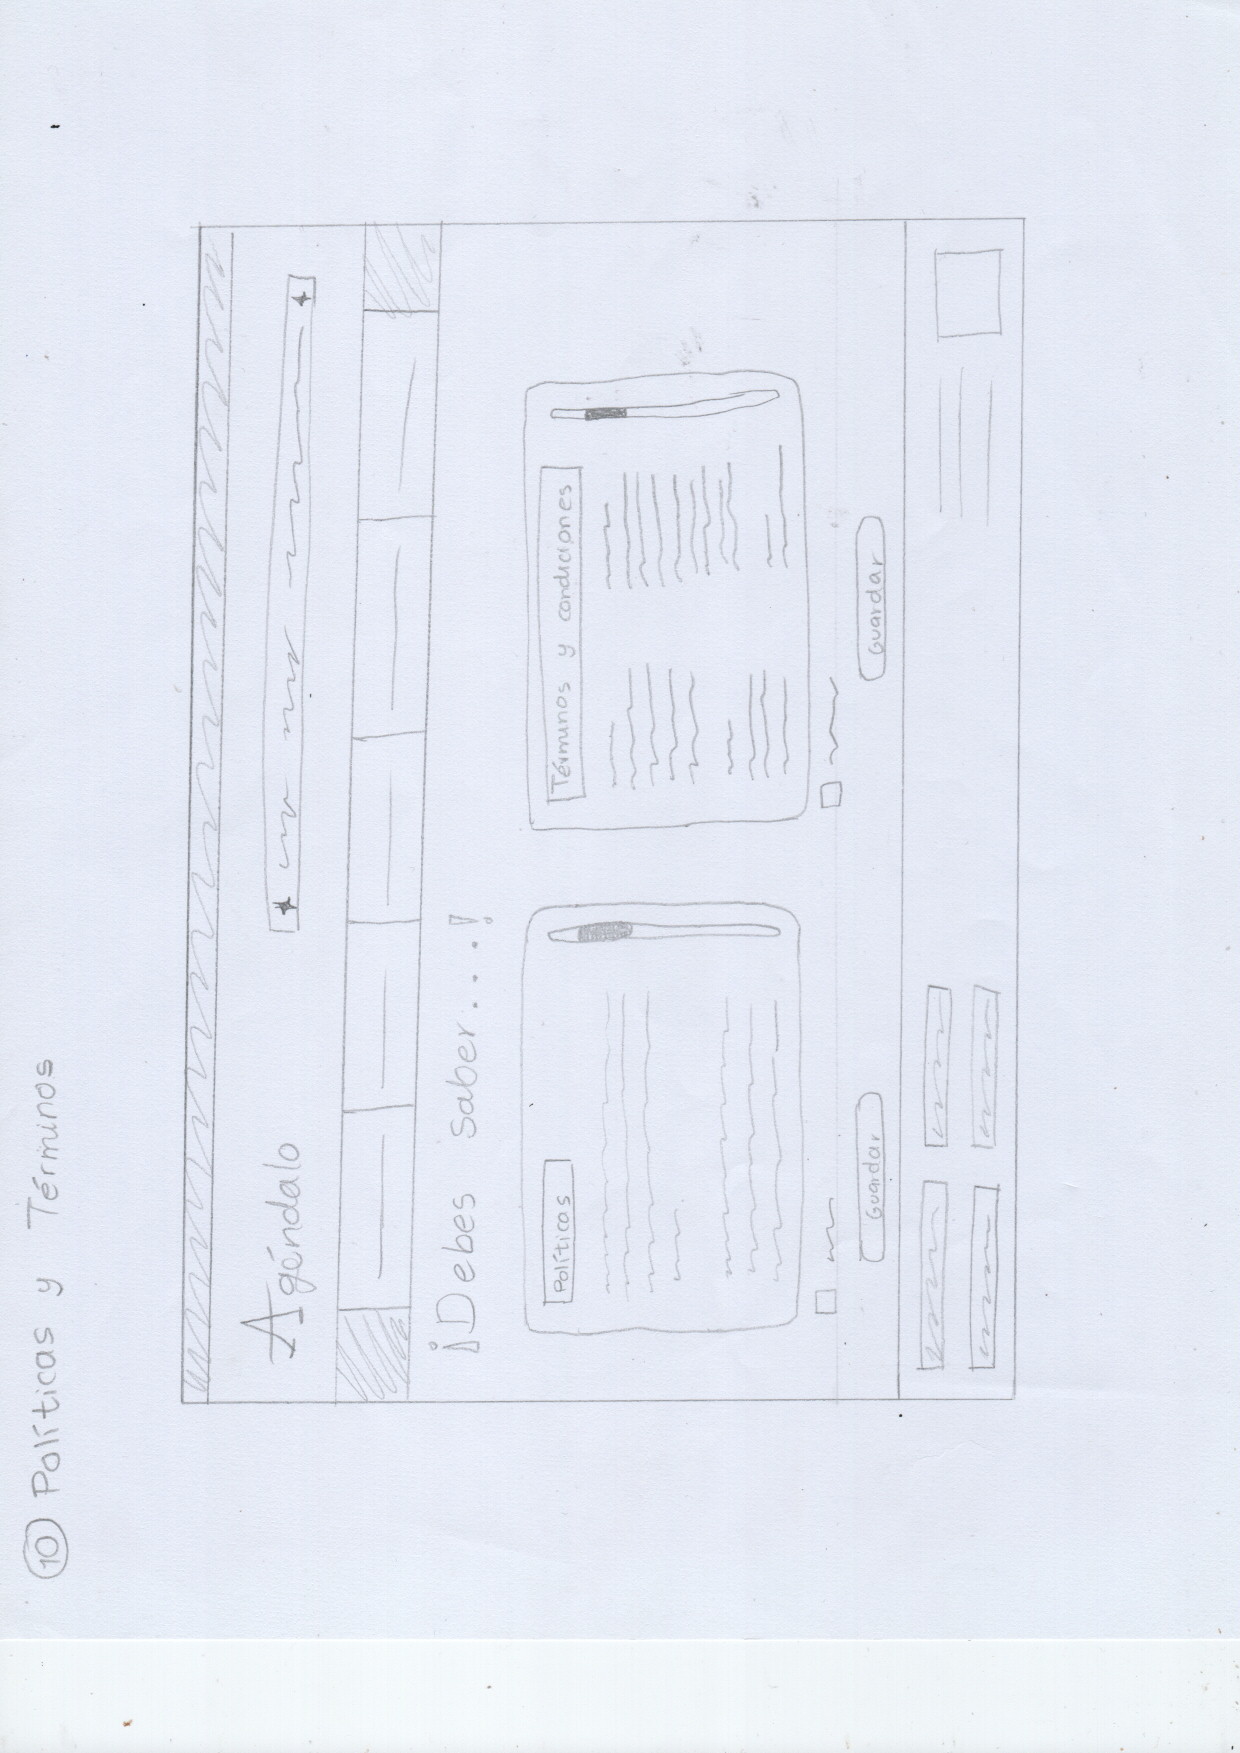 10 Políticas y Términos
Agéndalo
¡Debes saber...!
Políticas
Términos y condiciones
Guardar
Guardar